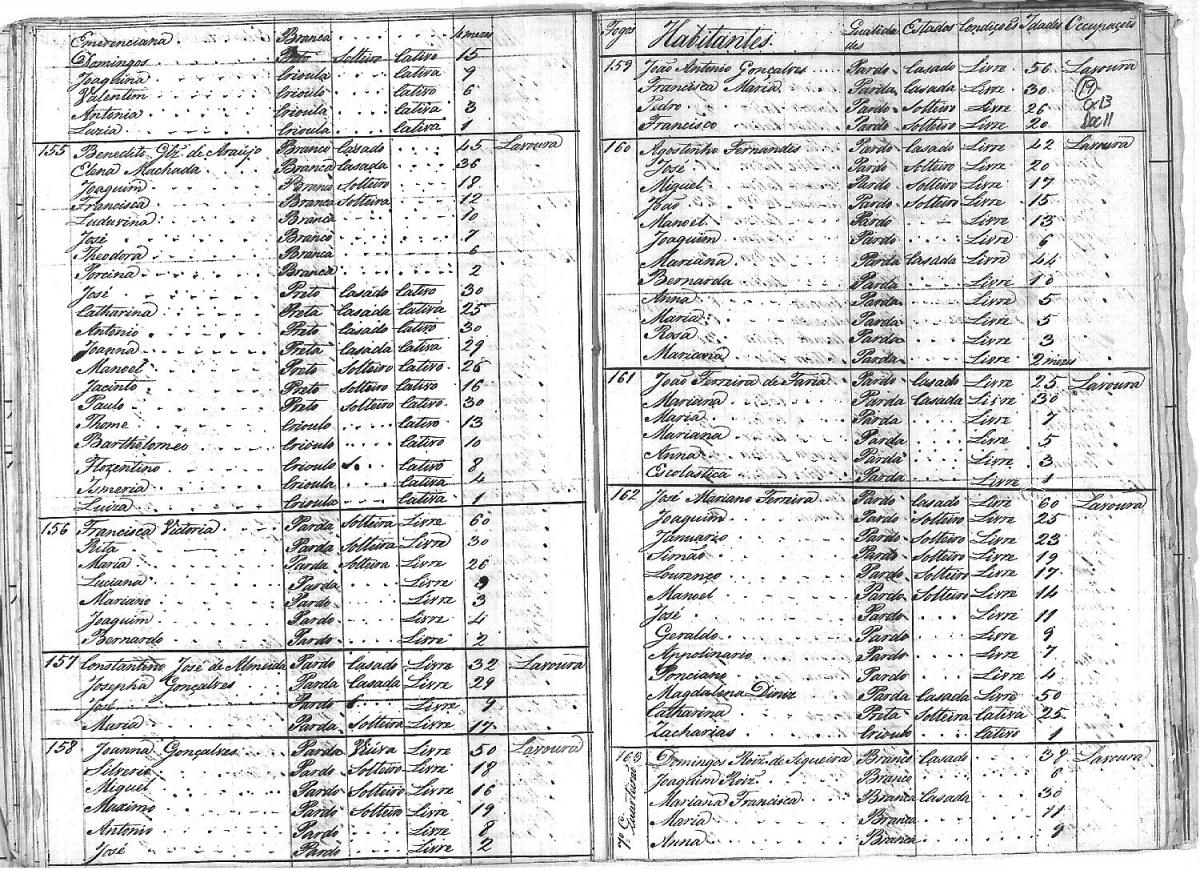 Emerenciana Branca 4 mezes
Domingos Preto Solteiro Cativo 15
Joaquina Crioula Cativa 9
Valentim Crioulo Cativo 6
Antonia Crioula Cativa 3
Luzia Crioula Cativa 1
155 Benedito Glz' de Araujo Branco Casado 45 Lavoura
Elena Machada Branca Casada 36
Joaquim Branco Solteiro 18
Francisca Branca Solteira 12
Luduvina Branca 10
José Branco 7
Theodora Branca 6
Porcina Branca 2
José Preto Casado Cativo 30
Catharina Preta Casada Cativa 25
Antonio Preto Casado Cativo 30
Joanna Preta Casada Cativa 29
Manoel Preto Solteiro Cativo 26
Jacinto Preto Solteiro Cativo 16
Paulo Preto Solteiro Cativo 30
Thome Crioulo Cativo 13
Barthelomeo Crioulo Cativo 10
Florentino Crioulo Cativo 8
Ismeria Crioula Cativa 4
Luiza Crioula Cativa 1
156 Francisca Victoria Parda Solteira Livre 60
Rita Parda Solteira Livre 30
Maria Parda Solteira Livre 26
Luciana Parda Livre
Mariano Pardo Livre 3
Joaquim Pardo Livre 4
Bernardo Pardo Livre 2
157 Constantino José de Almeida Pardo Casado Livre 32 Lavoura
Josepha Gonçalves Parda Casada Livre 29
José Pardo Livre 9
Maria Parda Solteira Livre 17
158 Joanna Gonçalves Parda Viuva Livre 50 Lavoura
Silverio Pardo Solteiro Livre 18
Miguel Pardo Solteiro Livre 16
Maximo Pardo Solteiro Livre 19
Antonio Pardo Livre 8
José Pardo Livre 2
Fogos Habitantes Qualidades Estados Condições Idades Occupações
159 João Antonio Gonçalves Pardo Casado Livre 56 Lavoura
Francisca Maria Parda Casada Livre 30
Pedro Pardo Solteiro Livre 26
Francisco Pardo Solteiro Livre 20
19
Cx13
Doc11
160 Agostinho Fernandis Pardo Casado Livre 42 Lavoura
José Pardo Solteiro Livre 20
Miguel Pardo Solteiro Livre 17
João Pardo Solteiro Livre 15
Manoel Pardo Livre 13
Joaquim Pardo Livre 6
Mariana Parda Casada Livre 44
Bernarda Parda Livre 10
Anna Parda Livre 5
Maria Parda Livre 5
Rosa Parda Livre 3
Mariana Parda Livre 2 mezes
161 João Ferreira de Faria Pardo Casado Livre 25 Lavoura
Mariana Parda Casada Livre 30
Maria Parda Livre 7
Mariana Parda Livre 5
Anna Parda Livre 3
Escolastica Parda Livre 1
162 José Mariano Ferreira Pardo Casado Livre 60 Lavoura
Joaquim Pardo Solteiro Livre 25
Januario Pardo Solteiro Livre 23
Simão Pardo Solteiro Livre 19
Lourenço Pardo Solteiro Livre 17
Manoel Pardo Solteiro Livre 14
José Pardo Livre 11
Geraldo Pardo Livre 9
Appolinario Pardo Livre 7
Ponciano Pardo Livre 4
Magdalena Diniz Parda Casada Livre 50
Catharina Preta Solteira Cativa 25
Zacharias Crioulo Cativo 1
163 Domingos Roiz' de Siqueira Branco Casado 38 Lavoura
Joaquim Roiz' Branco
Mariana Francisca Branca Casada 30
Maria Branca 11
Anna Branca 9
7º Quarteirão